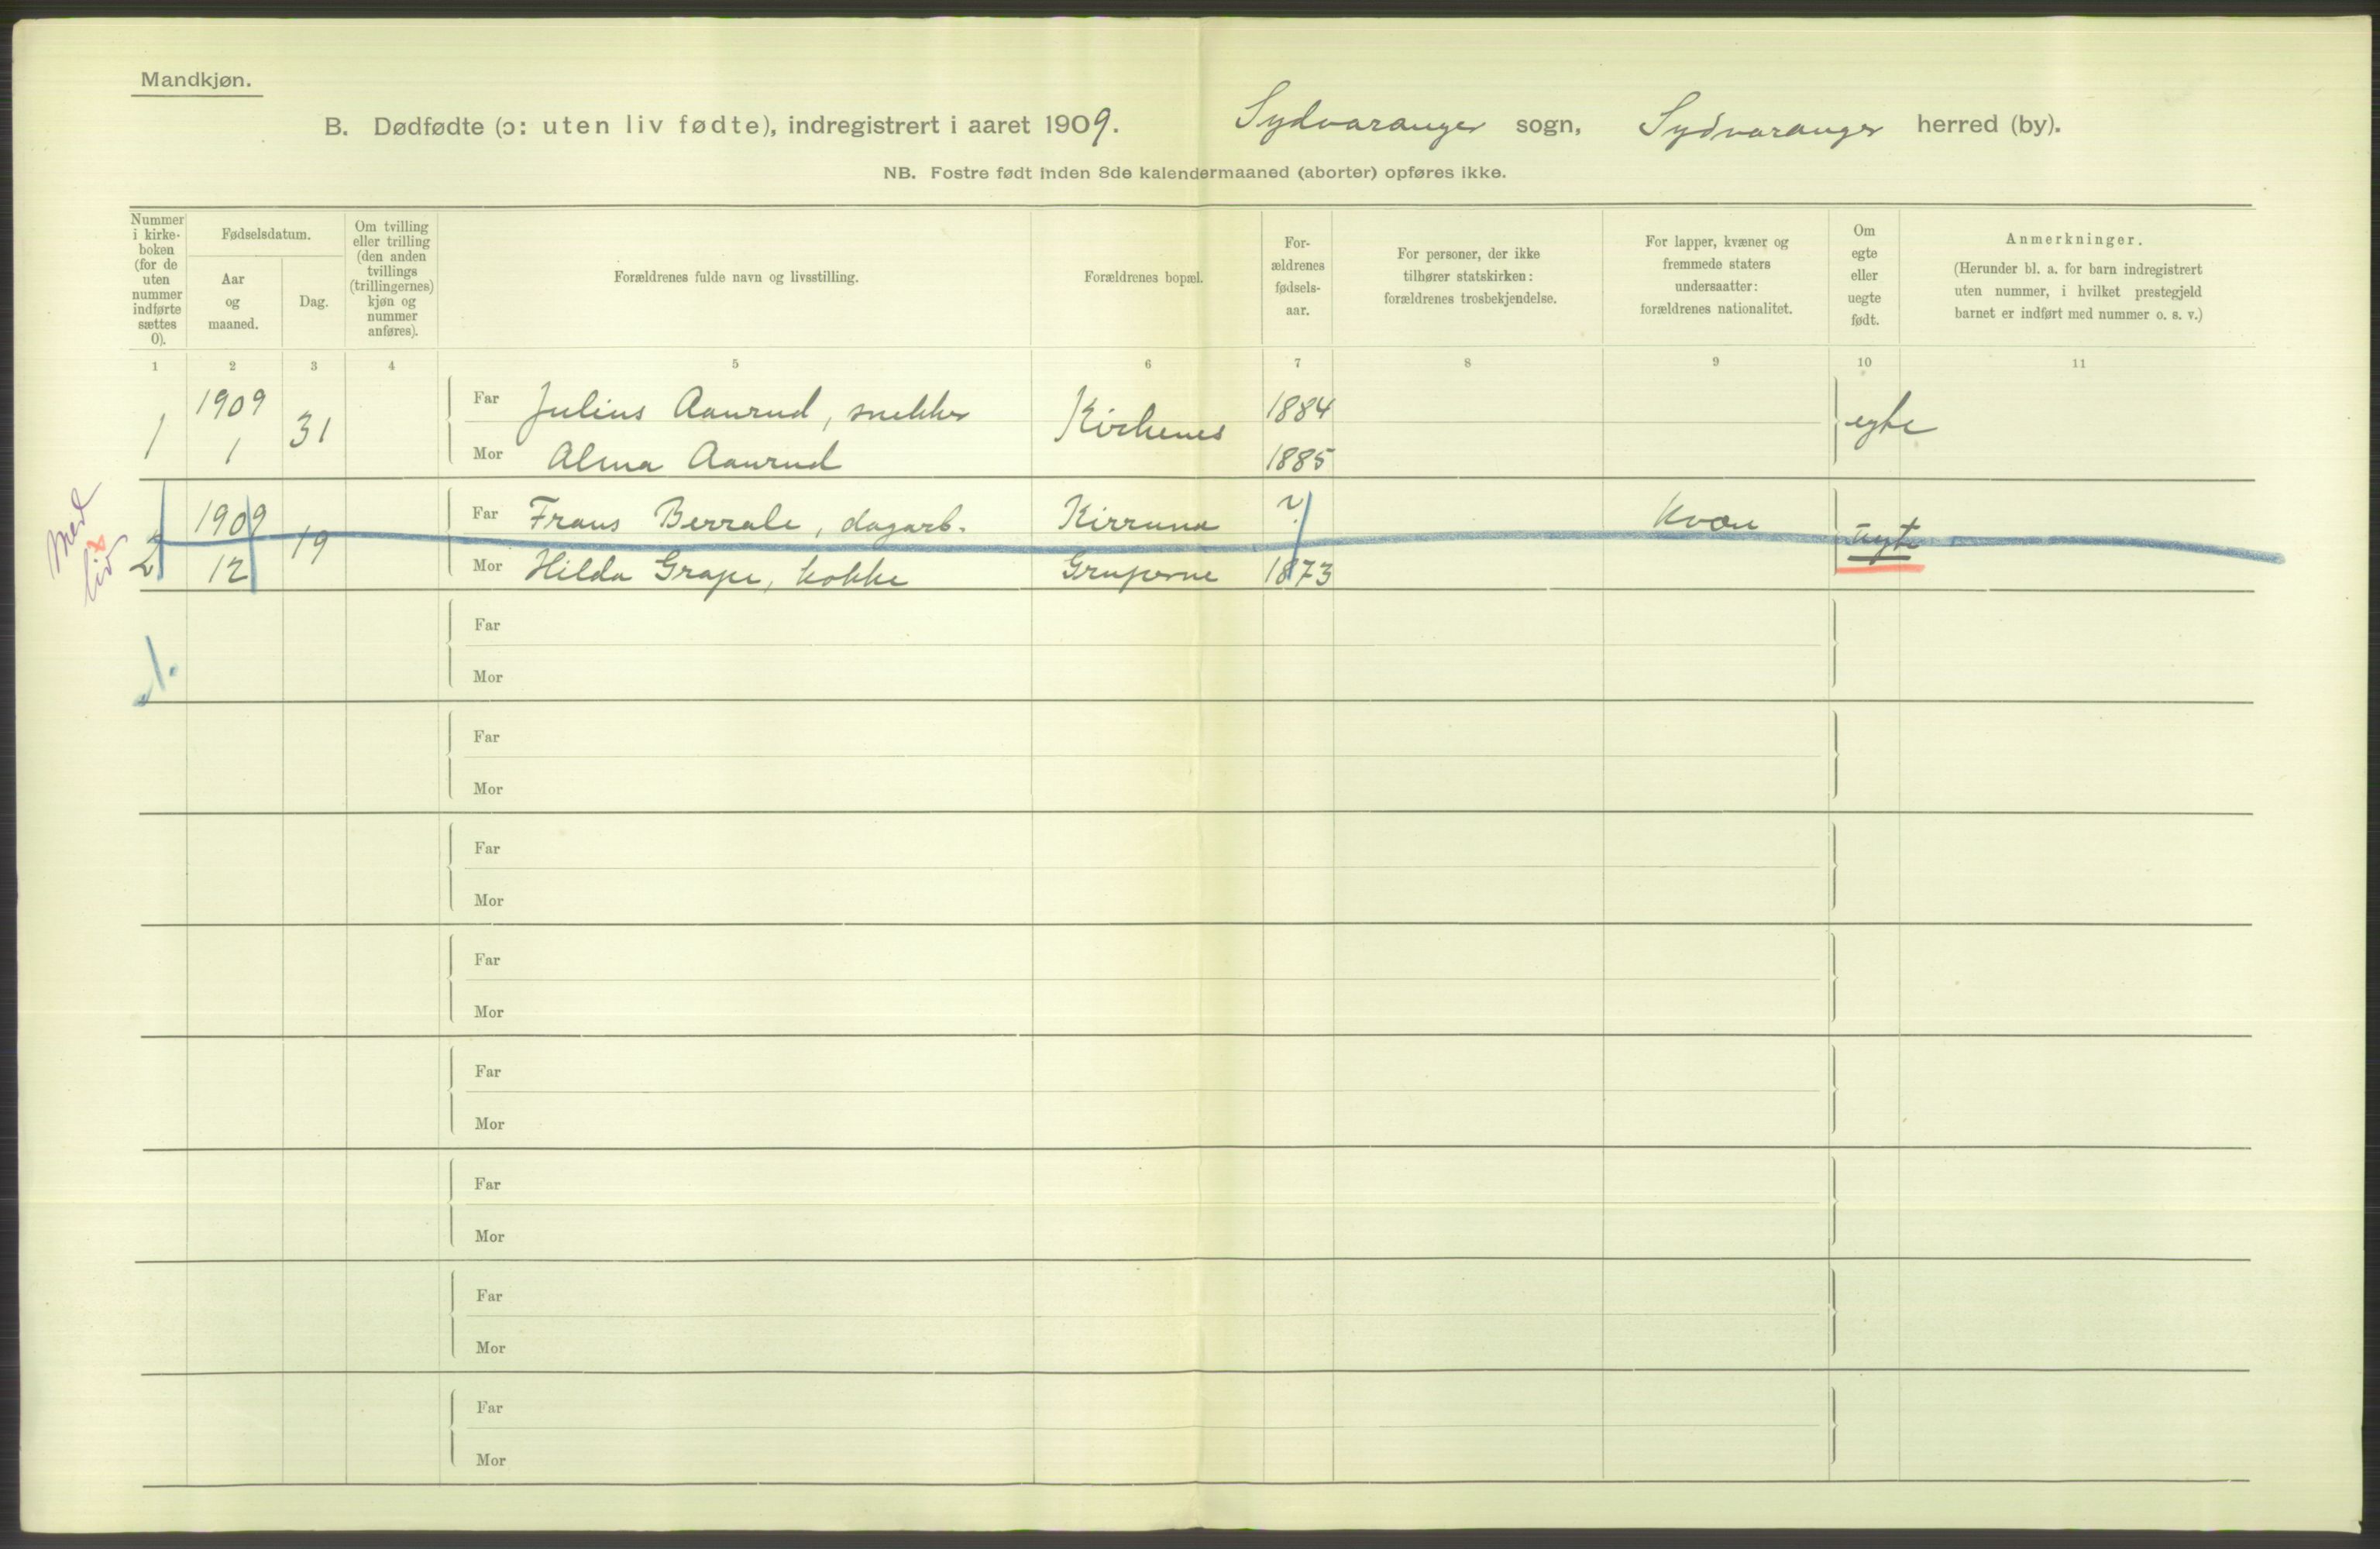 Mandkjøn.
B. Dødfødte (ɔ: uten liv fødte), indregistrert i aaret 1909. Sydvaranger sogn, Sydvaranger herred (by).
NB. Fostre født inden 8de kalendermaaned (aborter) opføres ikke.
Nummer i kirke-boken (for de uten nummer indførte sættes 0).
Fødselsdatum.
Aar og maaned.
Dag.
Om tvilling eller trilling (den anden tvillings (trillingernes) kjøn og nummer anføres).
Forældrenes fulde navn og livsstilling.
Forældrenes bopæl.
For-ældrenes fødsels-aar.
For personer, der ikke tilhører statskirken: forældrenes trosbekjendelse.
For lapper, kvæner og fremmede staters undersaatter: forældrenes nationalitet.
Om egte eller uegte født.
Anmerkninger.
(Herunder bl. a. for barn indregistrert uten nummer, i hvilket prestegjeld barnet er indført med nummer o. s. v.)
1 2 3 4 5 6 7 8 9 10 11
1 1909 1 31 Far Julius Aanrud, snekker Kirkenes 1884 egte
Mor Alma Aanrud 1885
Med liv
2 1909 12 19 Far Frans Berrale, dagarb. Kirruna ? Kvæn uegte
Mor Hilda Grape, kokke Gruberne 1873
1.
Far
Mor
Far
Mor
Far
Mor
Far
Mor
Far
Mor
Far
Mor
Far
Mor
Far
Mor